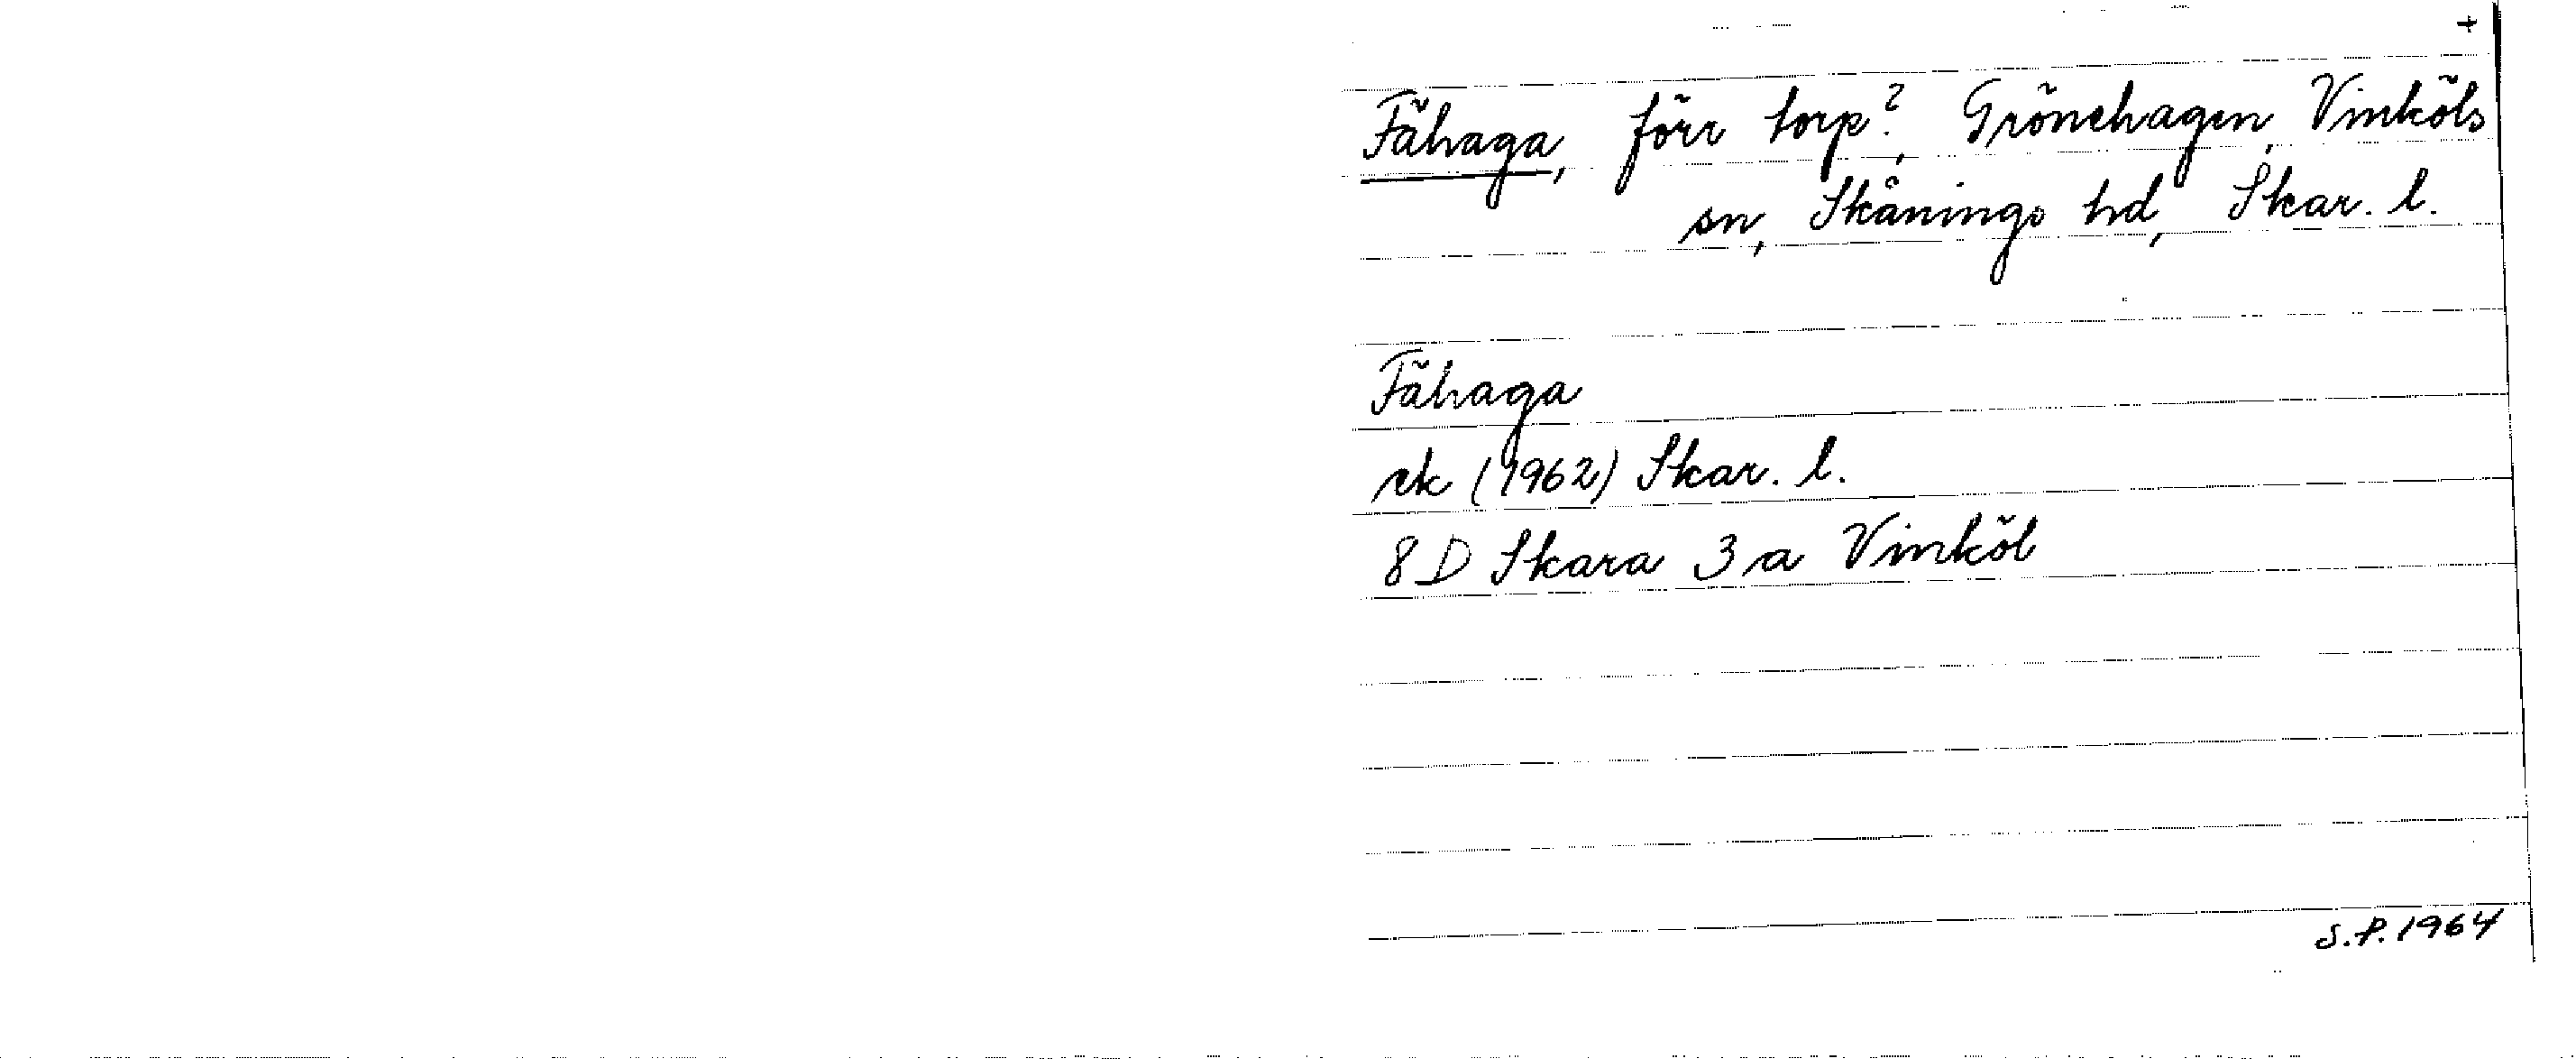 +
Fähaga, förr torp?, Grönehagen, Vinköls
sn, Skånings hd, Skar. l.
Fähaga
ek (1962) Skar. l.
8 D Skara 3 a Vinköl
S.P. 1964